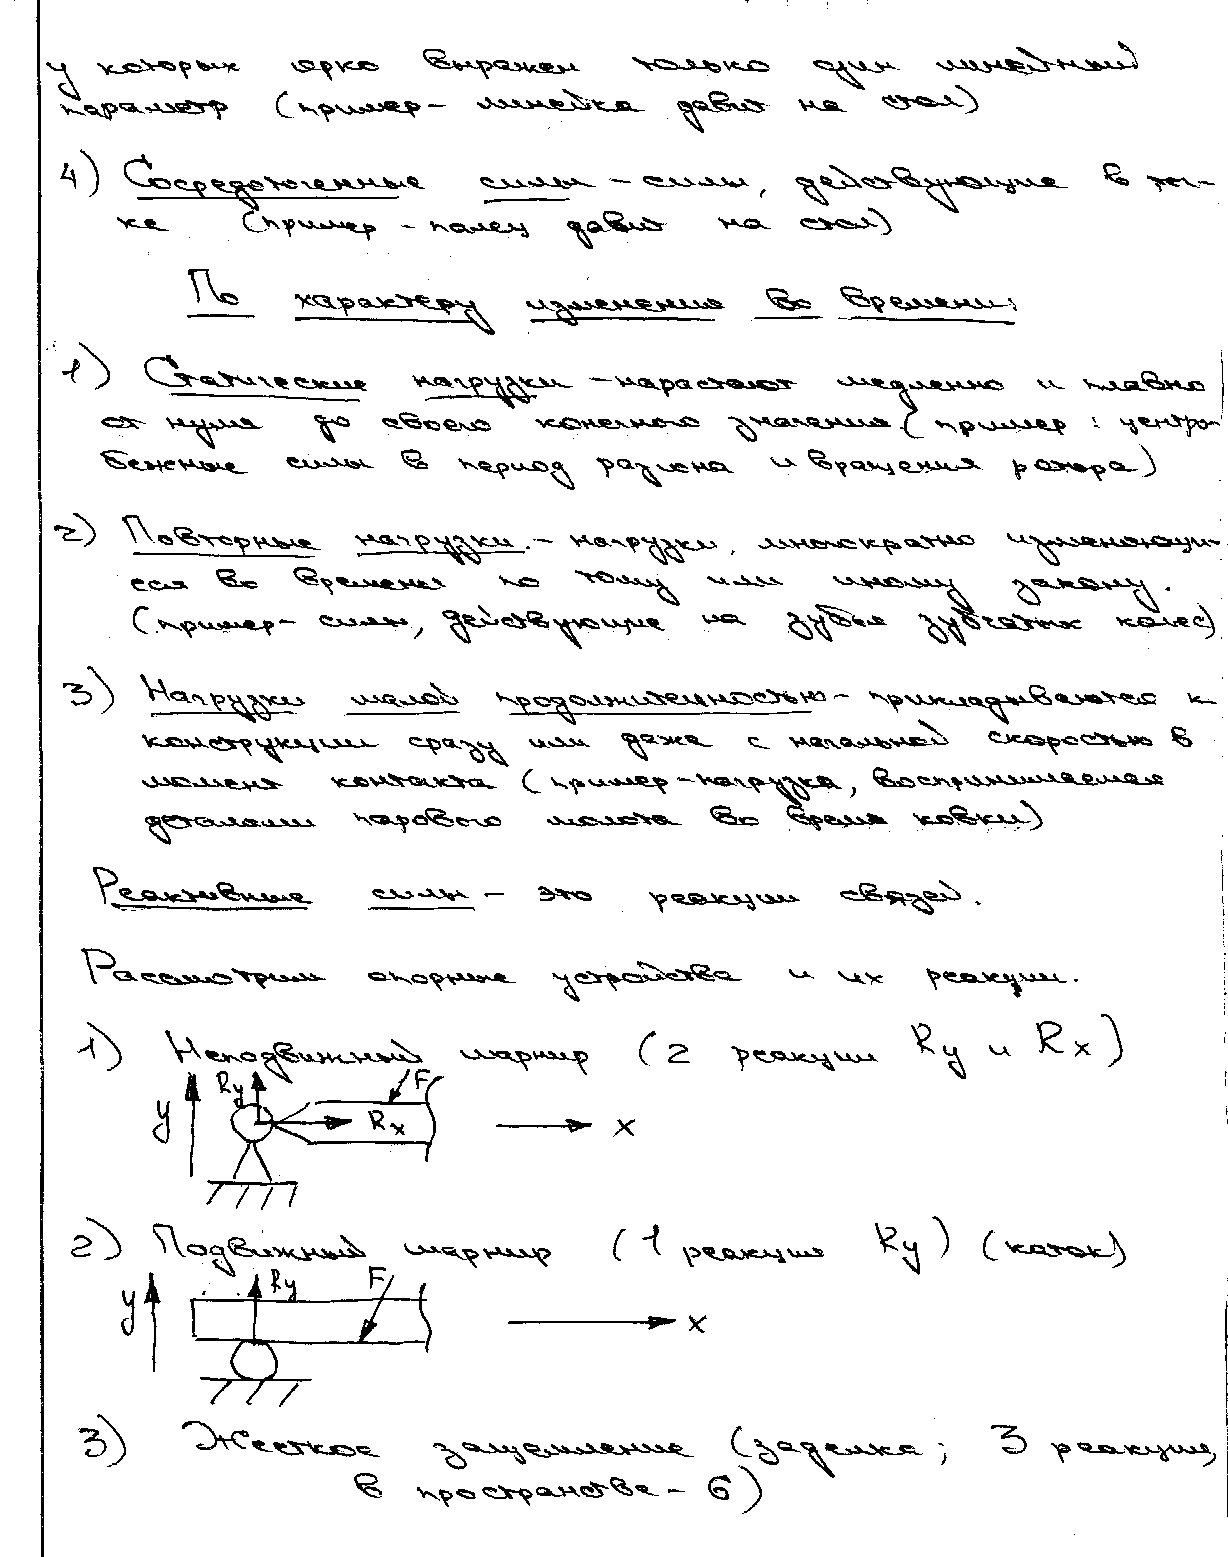 у которых ярко выражен только один линейный
параметр (пример - линейка давит на стол)
4) Сосредоточенные силы - силы, действующие в точ-
ке (пример - палец давит на стол)
По характеру изменения во времени:
1) Статические нагрузки - нарастают медленно и плавно
от нуля до своего конечного значения (пример: центро-
бежные силы в период разгона и вращения ротора)
2) Повторные нагрузки - нагрузки, многократно изменяющи-
еся во времени по тому или иному закону.
(пример - силы, действующие на зубья зубчатых колес)
3) Нагрузки малой продолжительностью - прикладываются к
конструкции сразу или даже с начальной скоростью в
момент контакта (пример - нагрузка, воспринимаемая
деталями парового молота во время ковки)
Реактивные силы - это реакции связей.
Рассмотрим опорные устройства и их реакции.
1) Неподвижный шарнир (2 реакции Ry и Rx)
y Ry F Rx x
2) Подвижный шарнир (1 реакция Ry) (каток)
y Ry F x
3) Жесткое защемление (заделка; 3 реакции,
в пространстве - 6)